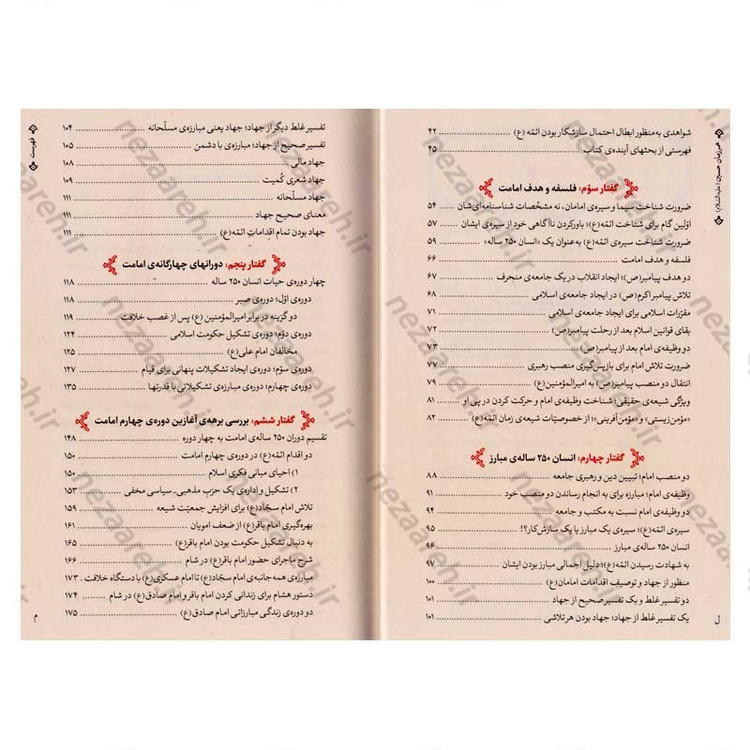 همرزمان حسین (علیه‌السّلام)
شواهدی به‌منظور ابطال احتمال سازشکار بودن ائمّه (ع) ۴۲
فهرستی از بحثهای آینده‌ی کتاب ۴۵
گفتار سوّم: فلسفه و هدف امامت
ضرورت شناخت سیما و سیره‌ی امامان، نه مشخّصات شناسنامه‌ای‌شان ۵۴
اوّلین گام برای شناخت ائمّه(ع)؛ باورکردن ناآگاهی خود از سیره‌ی ایشان ۵۷
ضرورت شناخت سیره‌ی ائمّه(ع) به‌عنوان یک «انسان ۲۵۰ ساله» ۵۹
فلسفه و هدف امامت ۶۶
دو هدف پیامبر(ص)؛ ایجاد انقلاب در یک جامعه‌ی منحرف ۶۷
تلاش پیامبر اکرم(ص) در ایجاد جامعه‌ی اسلامی ۶۸
مقرّرات اسلامی برای ایجاد جامعه‌ی اسلامی ۷۱
بقای قوانین اسلام بعد از رحلت پیامبر(ص) ۷۲
دو وظیفه‌ی امام بعد از پیامبر(ص) ۷۳
ضرورت تلاش امام برای بازپس‌گیری منصب رهبری ۷۷
انتقال دو منصب پیامبر(ص) به امیرالمؤمنین(ع) ۷۹
ویژگی شیعه‌ی حقیقی؛ شناخت وظیفه‌ی امام و حرکت کردن در پی او ۸۱
«مؤمن‌زیستی» و «مؤمن‌آفرینی»؛ از خصوصیّات شیعه‌ی زمان ائمّه(ع) ۸۲
گفتار چهارم: انسان ۲۵۰ ساله‌ی مبارز
دو منصب امام؛ تبیین دین و رهبری جامعه ۸۸
وظیفه‌ی امام؛ مبارزه برای به انجام رساندن دو منصب خود ۹۱
دو وظیفه‌ی امام نسبت به مکتب و جامعه ۹۴
سیره‌ی ائمّه(ع)؛ سیره‌ی یک مبارز یا یک سازش‌کار؟! ۹۵
انسان ۲۵۰ ساله‌ی مبارز ۹۶
به شهادت رسیدن ائمّه(ع)؛ دلیل اجمالی مبارز بودن ایشان ۹۷
منظور از جهاد و توصیف اقدامات امامان(ع) ۱۰۰
دو تفسیر غلط و یک تفسیر صحیح از جهاد ۱۰۱
یک تفسیر غلط از جهاد؛ جهاد بودن هر تلاشی ۱۰۱
ل
فهرست
تفسیر غلط دیگر از جهاد؛ جهاد یعنی مبارزه‌ی مسلّحانه ۱۰۴
تفسیر صحیح از جهاد؛ مبارزه‌ی با دشمن ۱۰۵
جهاد مالی ۱۰۸
جهاد شعری کُمیت ۱۰۹
جهاد مسلّحانه ۱۱۱
معنای صحیح جهاد ۱۱۱
جهاد بودن تمام اقدامات ائمّه(ع) ۱۱۱
گفتار پنجم: دورانهای چهارگانه‌ی امامت
چهار دوره‌ی حیات انسان ۲۵۰ ساله ۱۱۸
دوره‌ی اوّل؛ دوره‌ی صبر ۱۱۸
دو گزینه در برابر امیرالمؤمنین(ع) پس از غصب خلافت ۱۱۹
دوره‌ی دوّم؛ دوره‌ی تشکیل حکومت اسلامی ۱۲۴
مخالفان امام علی(ع) ۱۲۵
دوره‌ی سوّم؛ دوره‌ی ایجاد تشکیلات پنهانی برای قیام ۱۲۷
دوره‌ی چهارم؛ دوره‌ی مبارزه‌ی تشکیلاتی با قدرتها ۱۳۵
گفتار ششم: بررسی برهه‌ی آغازین دوره‌ی چهارم امامت
تقسیم دوران ۲۵۰ ساله‌ی امامت به چهار دوره ۱۴۸
دو اقدام ائمّه(ع) در دوره‌ی چهارم امامت ۱۵۰
۱) احیای مبانی فکری اسلام ۱۵۰
۲) تشکیل و اداره‌ی یک حزب مذهبی-سیاسی مخفی ۱۵۳
تلاش امام سجّاد(ع) برای افزایش جمعیّت شیعه ۱۵۹
بهره‌گیری امام باقر(ع) از ضعف امویان ۱۶۱
به دنبال تشکیل حکومت بودن امام باقر(ع) ۱۶۵
شرح ماجرای حضور امام باقر(ع) در شام ۱۶۶
مبارزه‌ی همه‌جانبه‌ی امام سجّاد(ع) تا امام عسکری(ع) با دستگاه خلافت ۱۷۳
دستور هشام برای زندانی کردن امام باقر و امام صادق(ع) در شام ۱۷۴
دو دوره‌ی زندگی مبارزاتی امام صادق(ع) ۱۷۵
م
nezaareh.ir